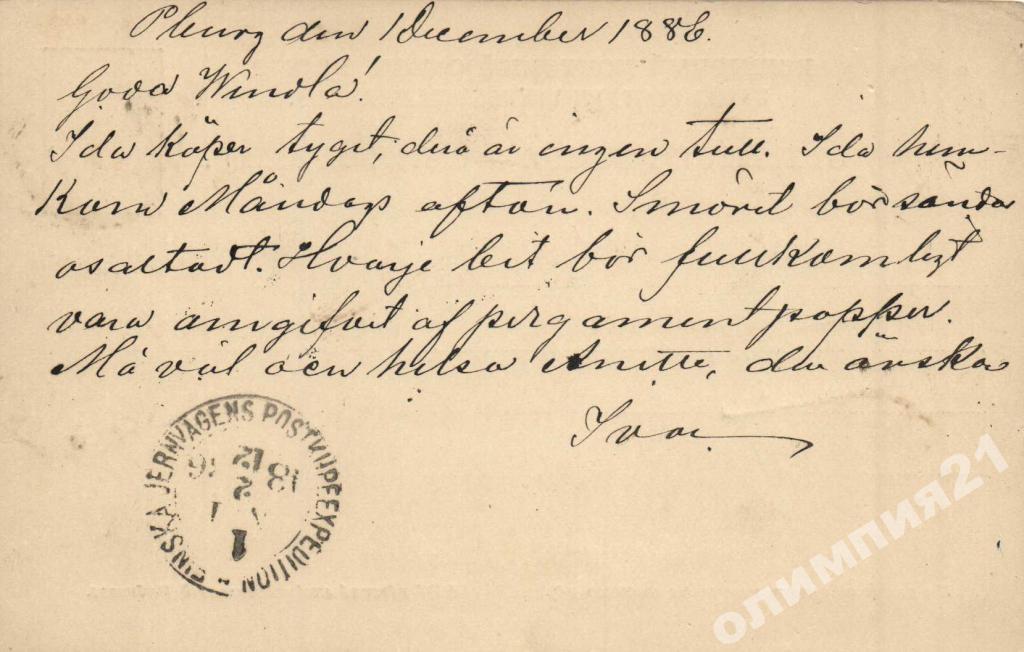 Pburg den 1 December 1886.
Goda Windla!
Ida köper tyget, derå är ingen tull. Ida hem-
kom Måndags afton. Smöret bör sändas
osaltadt. Hvarje bit bör fullkomligt
vara omgifvet af pergamentpapper.
Må väl och helsa Anette, den önskar
Ivar.
FINSKA JERNVÄGENS POSTKUPEEXPEDITION
2
12
1
олимпия21